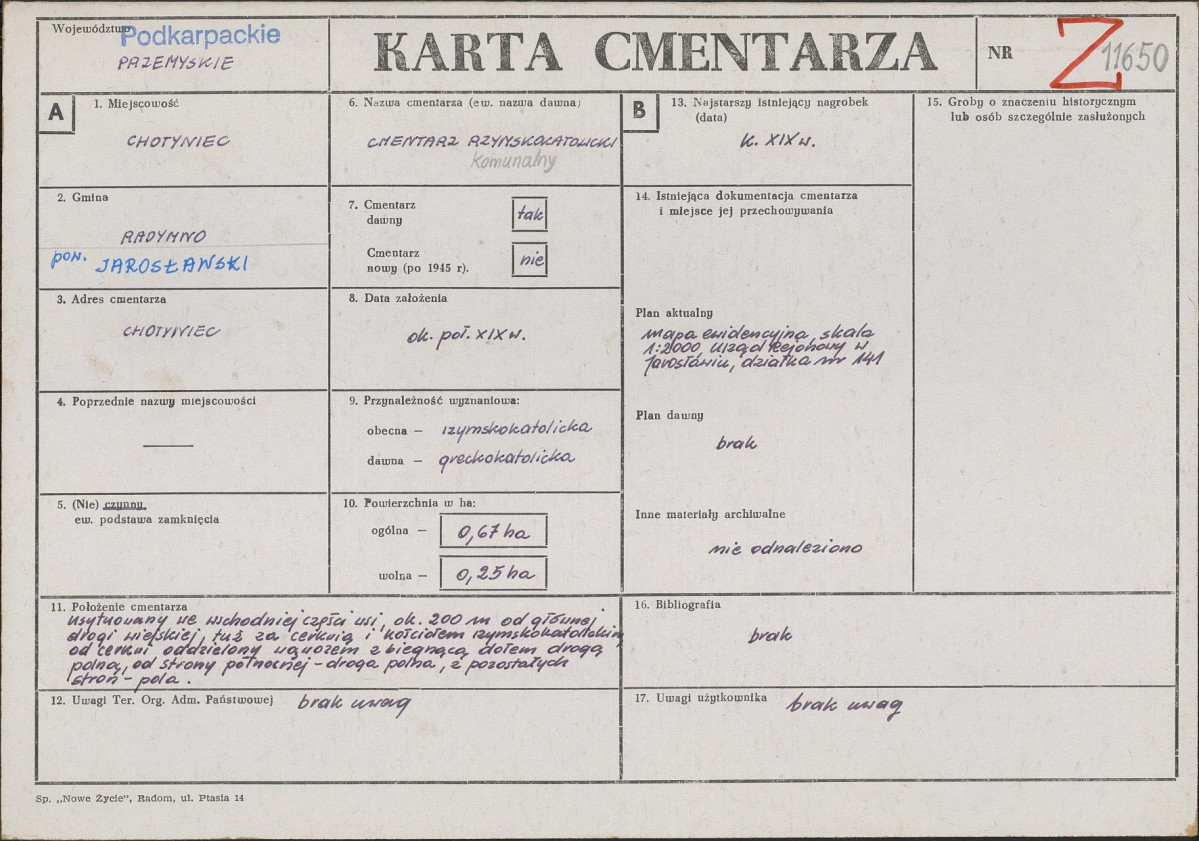 Województwo Podkarpackie
PRZEMYSKIE
KARTA CMENTARZA
NR Z 11650
A
1. Miejscowość
CHOTYNIEC
2. Gmina
RADYMNO
pow. JAROSŁAWSKI
3. Adres cmentarza
CHOTYNIEC
4. Poprzednie nazwy miejscowości
—
5. (Nie) czynny
ew. podstawa zamknięcia
6. Nazwa cmentarza (ew. nazwa dawna)
CMENTARZ RZYMSKOKATOLICKI
Komunalny
7. Cmentarz
dawny tak
Cmentarz
nowy (po 1945 r). nie
8. Data założenia
ok. poł. XIX w.
9. Przynależność wyznaniowa:
obecna — rzymskokatolicka
dawna — greckokatolicka
10. Powierzchnia w ha:
ogólna — 0,67 ha
wolna — 0,25 ha
11. Położenie cmentarza
usytuowany we wschodniej części wsi, ok. 200 m od głównej
drogi wiejskiej, tuż za cerkwią i kościołem rzymskokatolickim
od cerkwi oddzielony wąwozem z biegnącą dołem drogą
polną, od strony północnej - droga polna, z pozostałych
stron - pola.
12. Uwagi Ter. Org. Adm. Państwowej brak uwag
B
13. Najstarszy istniejący nagrobek
(data)
k. XIX w.
14. Istniejąca dokumentacja cmentarza
i miejsce jej przechowywania
Plan aktualny
mapa ewidencyjna, skala
1:2000, Urząd Rejonowy w
Jarosławiu, działka nr 141
Plan dawny
brak
Inne materiały archiwalne
nie odnaleziono
15. Groby o znaczeniu historycznym
lub osób szczególnie zasłużonych
16. Bibliografia
brak
17. Uwagi użytkownika brak uwag
Sp. „Nowe Życie", Radom, ul. Ptasia 14